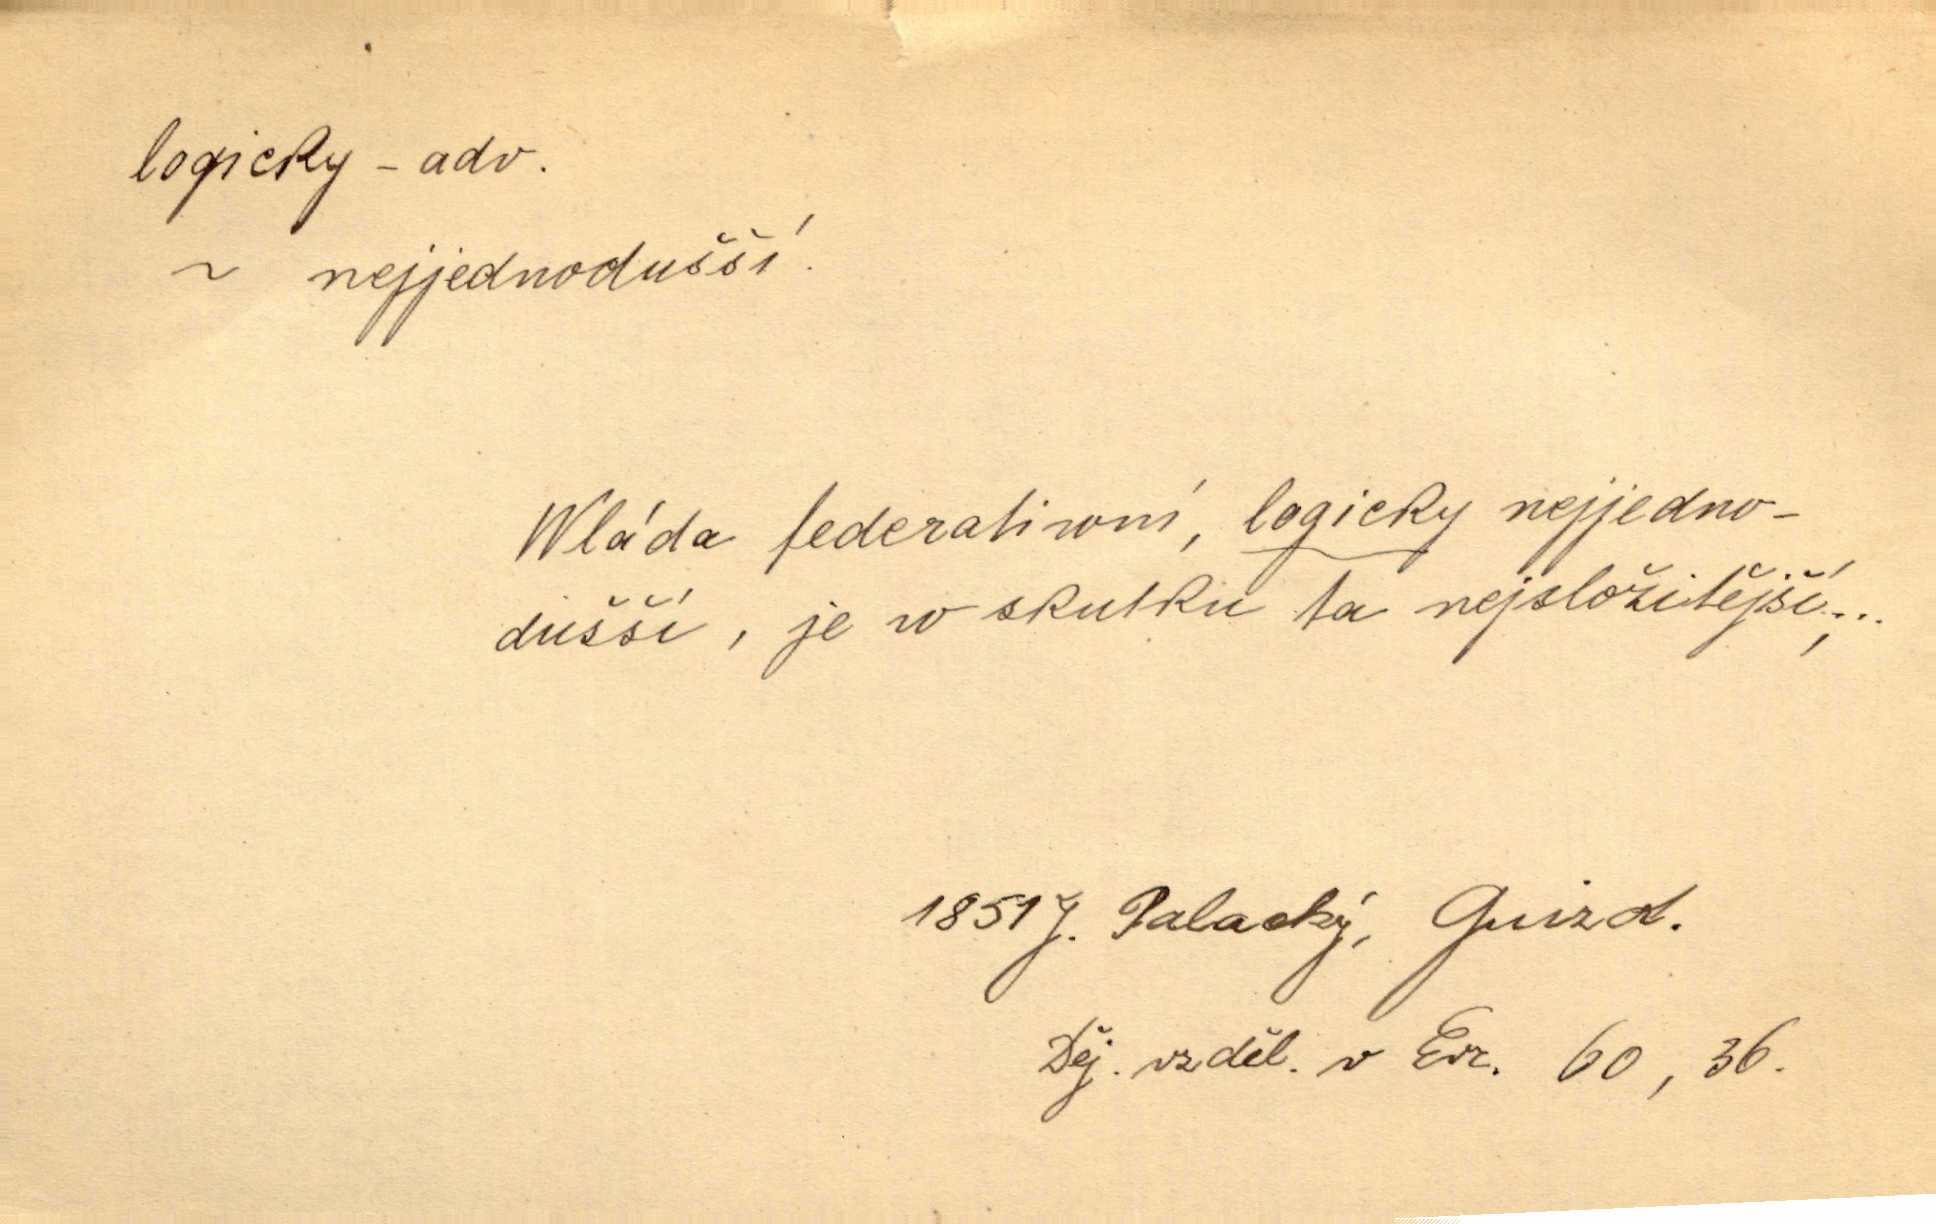 logicky – adv.
~ nejjednodušší.
Wláda federatiwní, logicky nejjedno-
dušší, je w skutku ta nejsložitější;...
1851 J. Palacký, Guizot.
Děj. vzděl. v Evr. 60, 36.